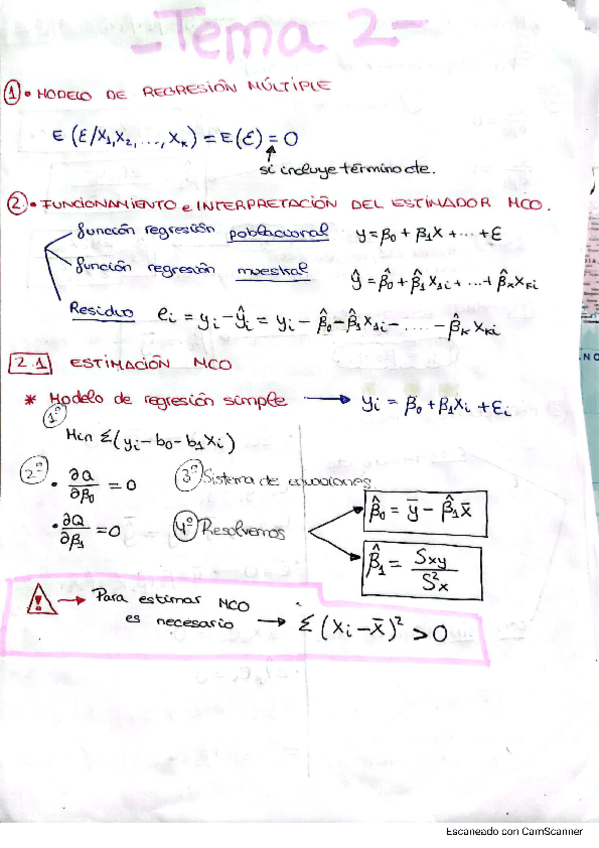 -Tema 2-
1 • MODELO DE REGRESIÓN MÚLTIPLE
E (ε/X1,X2, ..., Xk) = E(ε) = 0
si incluye término cte.
2 • FUNCIONAMIENTO e INTERPRETACIÓN DEL ESTIMADOR MCO.
función regresión poblacional y = β0 + β1X + ... + ε
función regresión muestral ŷ = β̂0 + β̂1 X1i + ... + β̂k Xki
Residuo ei = yi - ŷi = yi - β̂0 - β̂1 X1i - .... - β̂k Xki
2.1 ESTIMACIÓN MCO
* Modelo de regresión simple → yi = β0 + β1Xi + εi
1º
Min Σ(yi - b0 - b1Xi)
2º • ∂Q/∂β0 = 0
3º Sistema de ecuaciones
• ∂Q/∂β1 = 0
4º Resolvemos
β̂0 = ȳ - β̂1 x̄
β̂1 = Sxy/S²x
! → Para estimar MCO
es necesario → Σ (Xi - X̄)² > 0
Escaneado con CamScanner